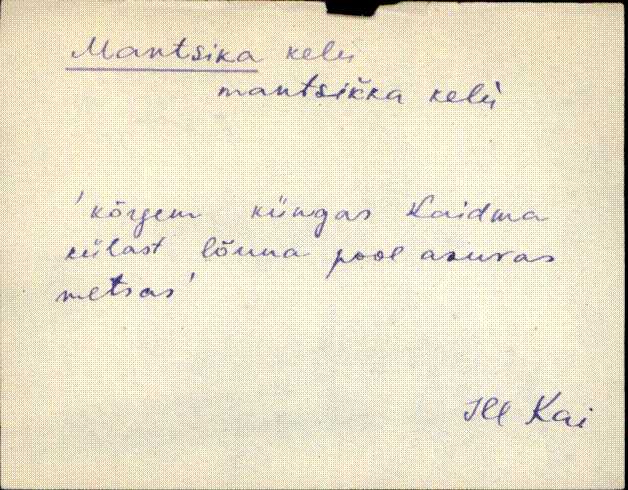 Mantsika kelü
mantsikka kelü
'kõrgem küngas Kaidma
külast lõuna pool asuvas
metsas'
Kai